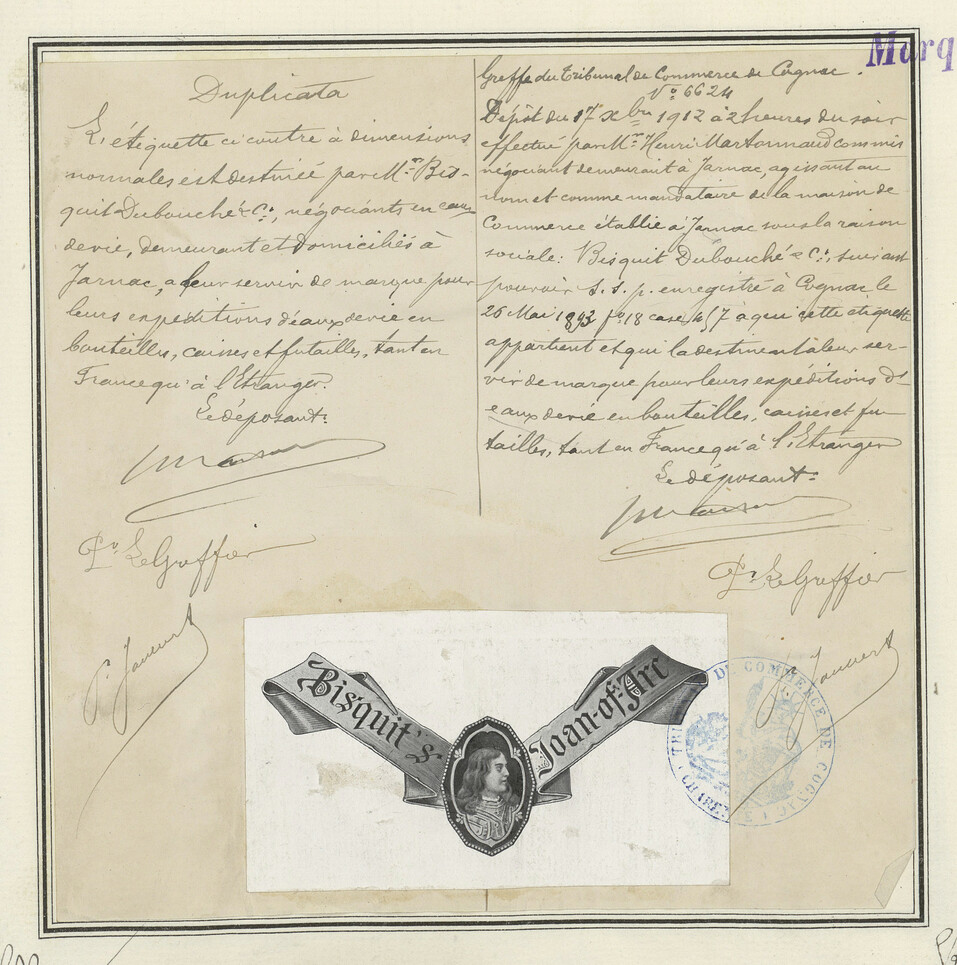 Marq
Duplicata
L'étiquette ci contre à dimensions
normales est destinée par Mr Bis-
quit Dubouché & Cie, négociants en eaux
de vie, demeurant et domiciliés à
Jarnac, a leur servir de marque pour
leurs expéditions d'eaux de vie en
bouteilles, caisses et futailles, tant en
France qu'à l'Etranger.
Le déposant:
Pr Le Greffier
Greffe du Tribunal de Commerce de Cognac.
No 6624
Dépôt du 17 Xbre 1912 à 2 heures du soir
effectué par Mr Henri Martonnaud commis
négociant demeurant à Jarnac, agissant au
nom et comme mandataire de la maison de
Commerce établie à Jarnac sous la raison
sociale: Bisquit Dubouché & Cie, suivant
pouvoir s. s. p. enregistré à Cognac le
26 Mai 1893 fo 18 case à qui cette etiquette
appartient et qui la destinent à leur ser-
vir de marque pour leurs expéditions d'
eaux de vie en bouteilles, caisses et fu-
tailles, tant en France qu'à l'Etranger
Le déposant:
Pr Le Greffier
Bisquit's Joan-of-Arc
TRIBUNAL DE COMMERCE DE COGNAC
CHARENTE